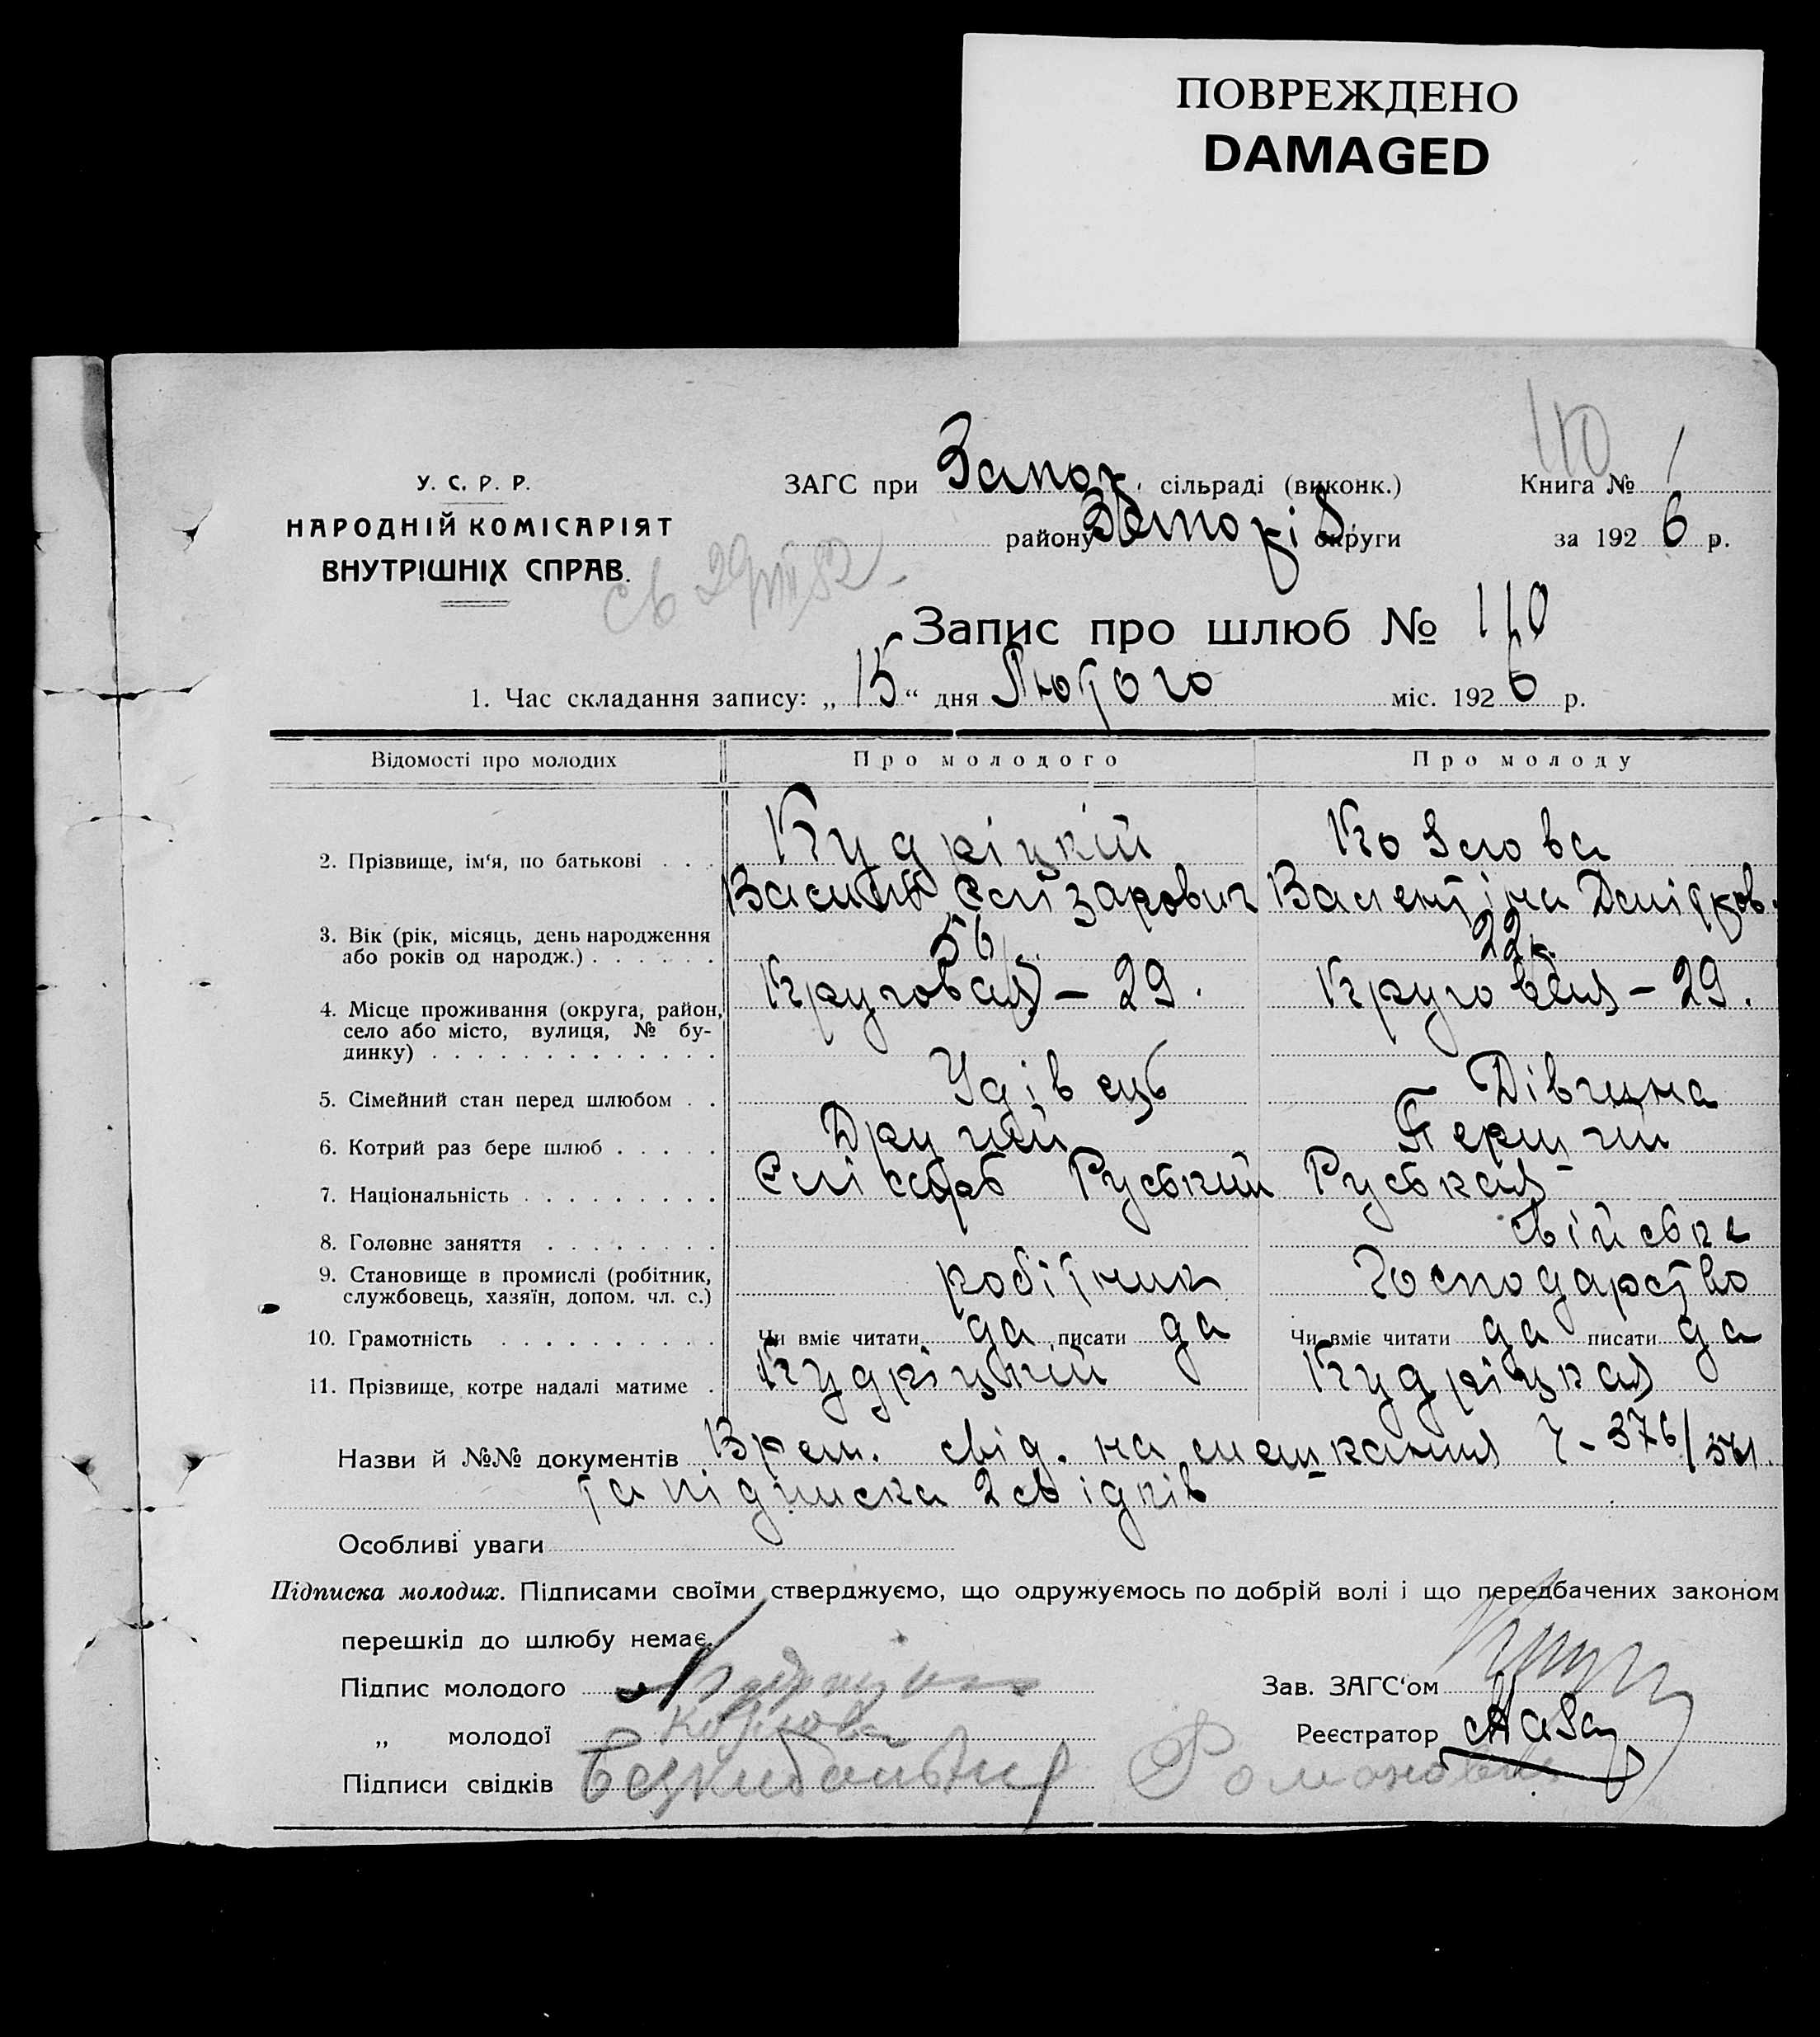 ПОВРЕЖДЕНО
DAMAGED
110
У. С. Р. Р.
НАРОДНІЙ КОМІСАРІЯТ
ВНУТРІШНІХ СПРАВ.
ЗАГС при Запор. сільраді (виконк.)
району Запоріз. округи
Книга № 1
за 1926 р.
св 29/VII 52
Запис про шлюб № 110
1. Час складання запису: „15“ дня Лютого міс. 1926 р.
Відомості про молодих Про молодого Про молоду
2. Прізвище, ім‘я, по батькові . . . Кудріцкій Козлова
Василій Елізарович Валентіна
3. Вік (рік, місяць, день народження
або років од народж.) . . . . . . 56 22 р.
4. Місце проживання (округа, район,
село або місто, вулиця, № бу-
динку) . . . . . . . . . . . . . Круговая – 29. Круговая – 29.
5. Сімейний стан перед шлюбом . . Удівець Дівчина
6. Котрий раз бере шлюб . . . . . Другий Перший
7. Національність . . . . . . . . . Руський Руськая
8. Головне заняття . . . . . . . . свійске
9. Становище в промислі (робітник,
службовець, хазяїн, допом. чл. с.) робітник Господарство
10. Грамотність . . . . . . . . . . Чи вміє читати да писати да Чи вміє читати да писати да
11. Прізвище, котре надалі матиме . Кудріцкій Кудріцкая
Назви й №№ документів Врем. свід. на мешкання
та підписка 2 свідків
Особливі уваги
Підписка молодих. Підписами своїми стверджуємо, що одружуємось по добрій волі і що передбачених законом
перешкід до шлюбу немає.
Підпис молодого
„ молодої Козлова
Підписи свідків
Зав. ЗАГС‘ом
Реєстратор